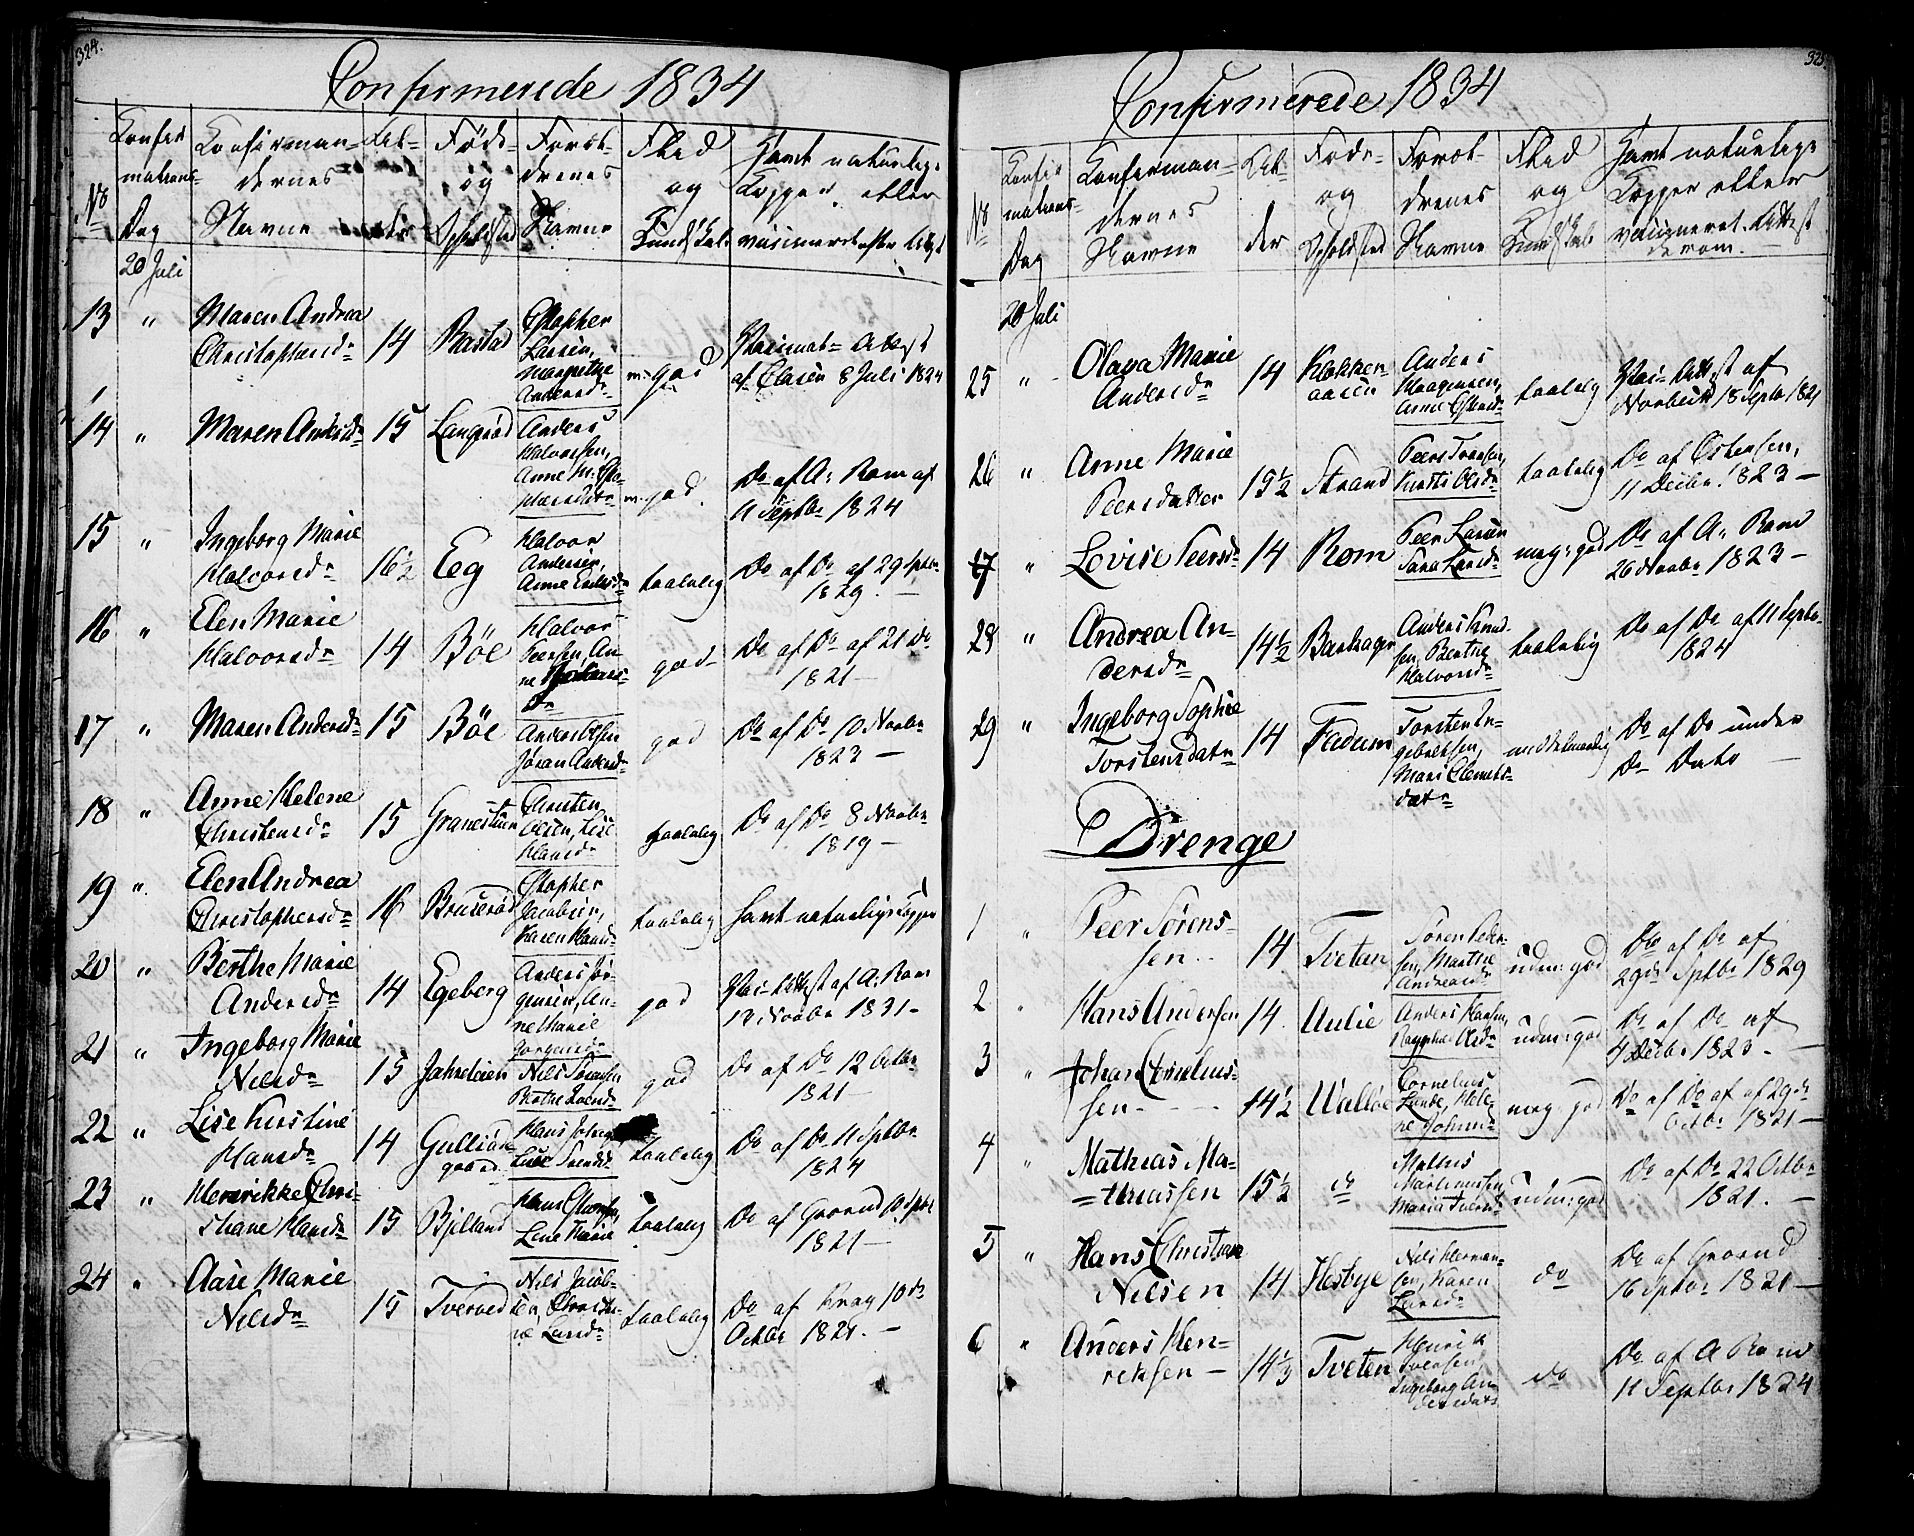 324.
Confirmerede 1834
Confir
mations-
Dag
No
Konfirman-
dernes
Navne
Føde-
og
Opholdsted
Foræl-
drenes
Navne
Flid
og
Kundskab
Havt naturlige
Kopper eller
vaccineret efter Attest
20 Juli
13 " Maren Andrea
Christophersdr 14 Bastad
Cristopher
Larsen,
Margrethe
Andersdr
m. god
Vaccinat- Attest
af Clasen 8 Juli 1824
14 " Maren Andersdr 15 Langrød
Anders
Halvorsen,
Anne M.
m. god
Do af A: Rom af
11 Septbr 1824
15 " Ingeborg Marie
Halvorsdr 16½ Eeg
Halvor
Andersen,
Anne
taalelig
Do af Do af 29 Septbr
1829. —
16 " Elen Marie
Halvorsdr 14 Böe
Halvor
Peersen, An-
ne
dr
god
Do af Do af 21 Do
1821 —
17 " Maren Andersdr 15 Böe
Anders Olsen
Jøran Andersdr
god
Do af Do 10 Novbr
1823 —
18 " Anne Helene
Christensdr 15
Christen
Olsen, Lise
Hansdr
taalelig
Do af Do 8 Novbr
1819 —
19 " Elen Andrea
Christophersdr 16 Bruserød
Cristopher
Jacobsen,
Karen Hansdr
taalelig
Havt naturlige Kopper
20 " Berthe Marie
Andersdr 14 Egeberg
Anders Jør-
gensen, An-
ne Marie
Jørgensdr
god
Vac: Attest af A. Rom
13 Novbr 1831 —
21 " Ingeborg Marie
Nilsdr 15
Nils Sørensen
Berthe
god
Do af Do 12 Octbr
1821 —
22 " Lise Kirstine
Hansdr 14
Hans
Lise
taalelig
Do af Do 11 Septbr
1824
23 " Henrikke Chri-
stiane Hansdr 15 Bjelland
Hans
Lene Marie
taalelig
Do af Grorud
1821 —
24 " Aase Marie
Nilsdr 15 Tverved
Nils Jacob-
sen, Christi-
ne Larsdr
taalelig
Do af Krag 10de
Octbr 1821. —
325.
Confirmerede 1834
No
Confir
mations-
Dag
Konfirman-
dernes
Navne
Al-
der
Føde-
og
Opholdsted
Foræl-
drenes
Navne
Flid
og
Kundskab
Havt naturlige
Kopper eller
vaccineret. Attest
derom.
20 Juli
25 " Olava Marie
Andersdr 14 Klokker-
aasen
Anders
Haagensen,
Anne
taalelig
Vac: Attest af
Norbeck 18 Septbr 1821
26 " Anne Marie
Peersdatter 15½ Strand
Peer Iversen,
Kirsti Olsdr
taalelig
Do af Østensen,
11 Decbr. 1823 —
27 " Lovise Peersdr 14 Rom
Peer Larsen
Sara Larsdr
meg: god
Do af A: Rom
26 Novbr 1823 —
28 " Andrea An-
dersdr 14½ Barhager
Anders Knud-
sen, Berthe
Halvorsdr
taalelig
Do af Do af 11 Septbr
1824
29 " Ingeborg Sophie
Torstensdatr 14 Fadum
Torsten In-
gebretsen,
Mari Clemets-
datr
middelmaadig
Do af Do under
Do Dato —
Drenge
1 " Peer Sørens-
sen 14 Tveten
Søren Peder-
sen, Marthe
Andreasdr
udm: god
Do af Do af
29de Septbr 1829
2 " Hans Andersen 14 Aulie
Anders Hansen,
Olsdr
udm: god
Do af Do af
4 Decbr 1823. —
3 " Johan Cornelius-
sen - - - 14½ Walløe
Cornelius
Lunde, Hele-
ne Johnsdr
meg: god
Do af Do af 29de
Octbr 1821 —
4 " Mathias Ma-
=thiassen 15½ do
Mathis
Mathiassen,
Maria Iversdr
udm: god
Do af Do 22 Octbr
1821. —
5 " Hans Christian
Nilsen 14 Hesbye
Nils Herman-
sen, Karen
Larsdr
do
Do af Grorud
16 Septbr 1821 —
6 " Anders Hen-
riksen — 14⅓ Tveten
Henrik
Iversen,
Ingeborg An-
dersdatr
do
Do af A Rom
11 Septbr 1824